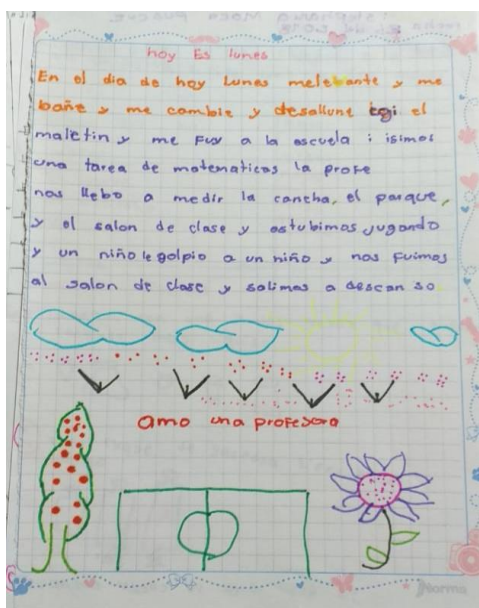 hoy Es lunes
En el dia de hoy Lunes melevante y me
bañe y me cambie y desallune cogi el
maletin y me fuy a la escuela i isimos
una tarea de matematicas la profe
nos llebo a medir la cancha, el parque,
y el salon de clase y estubimos jugando
y un niño le golpio a un niño y nos fuimos
al salon de clase y salimos a descan so
amo una profesora
Norma